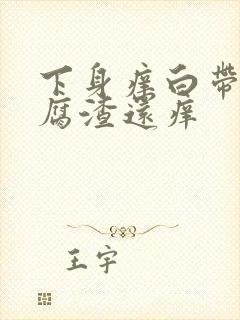 下身痒白带
腐渣还痒
王宇